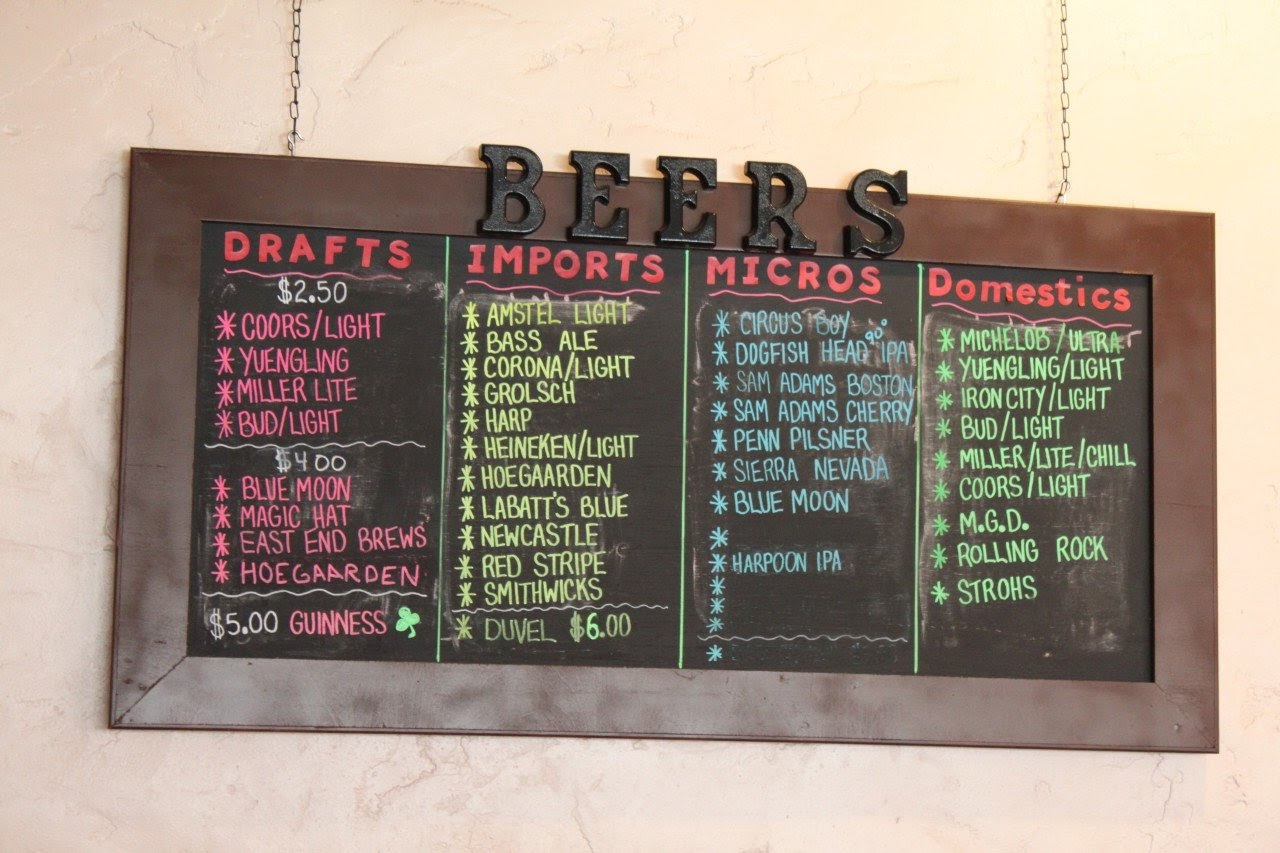 BEERS
DRAFTS
$2.50
* COORS/LIGHT
* YUENGLING
* MILLER LITE
* BUD/LIGHT
$4.00
* BLUE MOON
* MAGIC HAT
* EAST END BREWS
* HOEGAARDEN
$5.00 GUINNESS
IMPORTS
* AMSTEL LIGHT
* BASS ALE
* CORONA/LIGHT
* GROLSCH
* HARP
* HEINEKEN/LIGHT
* HOEGAARDEN
* LABATT'S BLUE
* NEWCASTLE
* RED STRIPE
* SMITHWICKS
* DUVEL $6.00
MICROS
* CIRCUS BOY
* DOGFISH HEAD 90° IPA
* SAM ADAMS BOSTON
* SAM ADAMS CHERRY
* PENN PILSNER
* SIERRA NEVADA
* BLUE MOON
*
* HARPOON IPA
*
*
*
*
Domestics
* MICHELOB/ULTRA
* YUENGLING/LIGHT
* IRON CITY/LIGHT
* BUD/LIGHT
* MILLER/LITE/CHILL
* COORS/LIGHT
* M.G.D.
* ROLLING ROCK
* STROHS